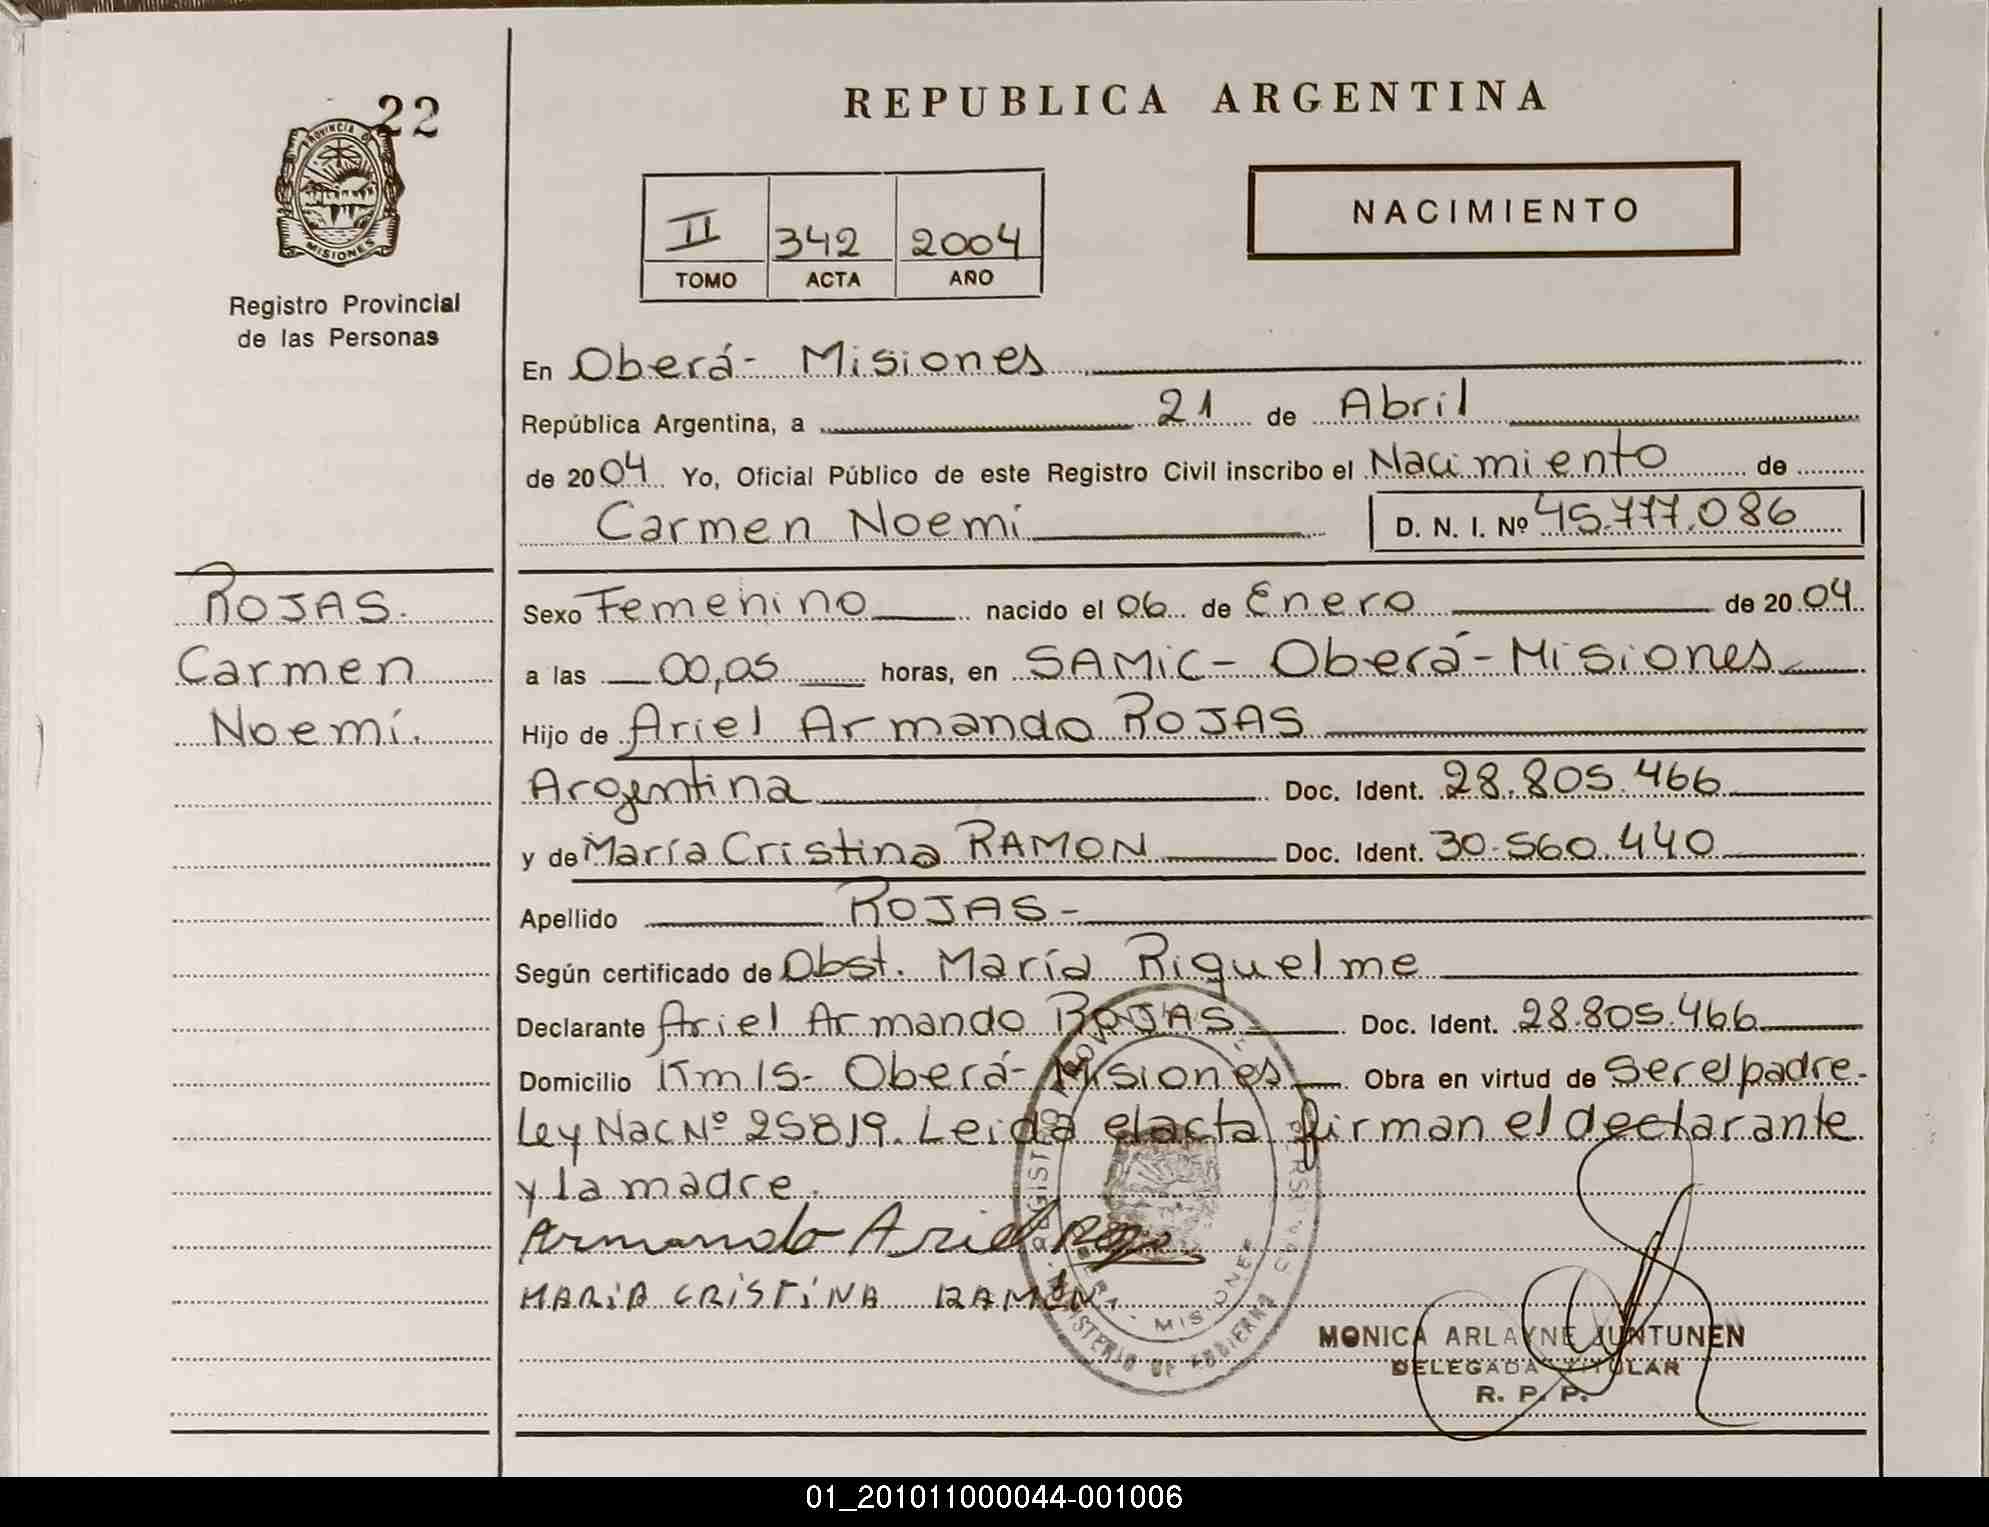 22
PROVINCIA DE
MISIONES
Registro Provincial
de las Personas
REPUBLICA ARGENTINA
II 342 2004
TOMO ACTA AÑO
NACIMIENTO
En Oberá- Misiones
República Argentina, a 21 de Abril
de 2004 Yo, Oficial Público de este Registro Civil inscribo el Nacimiento de
Carmen Noemí D. N. I. Nº 45.777.086
ROJAS.
Carmen
Noemí.
Sexo Femenino nacido el 06 de Enero de 2004
a las 00,05 horas, en SAMIC- Oberá- Misiones
Hijo de Ariel Armando ROJAS
Argentina Doc. Ident. 28.805.466
y de María Cristina RAMON Doc. Ident. 30.560.440
Apellido ROJAS-
Según certificado de Obst. María Riquelme
Declarante Ariel Armando ROJAS Doc. Ident. 28.805.466
Domicilio Km 15- Oberá- Misiones Obra en virtud de ser el padre.
Ley Nac Nº 25819. Leida el acta firman el declarante
y la madre.
Armando Ariel
MARIA CRISTINA RAMÓN
MISIONES
MINISTERIO DE GOBIERNO
MONICA ARLAYNE JUNTUNEN
DELEGADA TITULAR
R. P. P.
01_201011000044-001006